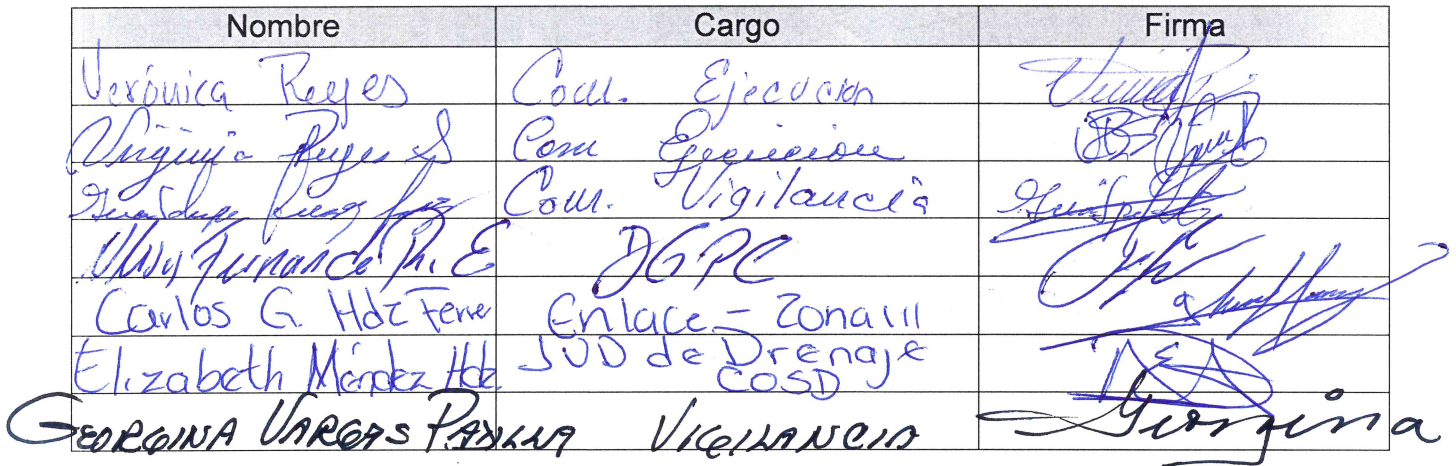 Nombre Cargo Firma
Verónica Reyes Com. Ejecución
Virginia Reyes S Com Ejecucion
Guadalupe Com. Vigilancia
Fernando DGPC
Carlos G. Hdz Ferrer Enlace - Zona III
Elizabeth Méndez Hdz JUD de Drenaje
COSD
GEORGINA VARGAS PADILLA VIGILANCIA Georgina